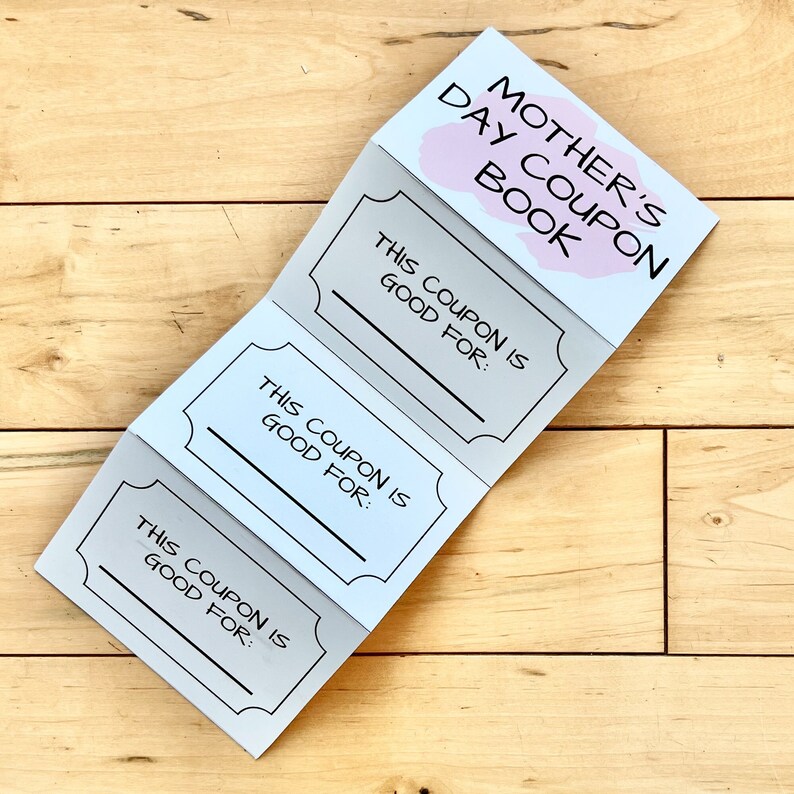 MOTHER'S
DAY COUPON
BOOK
THIS COUPON IS
GOOD FOR:
THIS COUPON IS
GOOD FOR:
THIS COUPON IS
GOOD FOR: